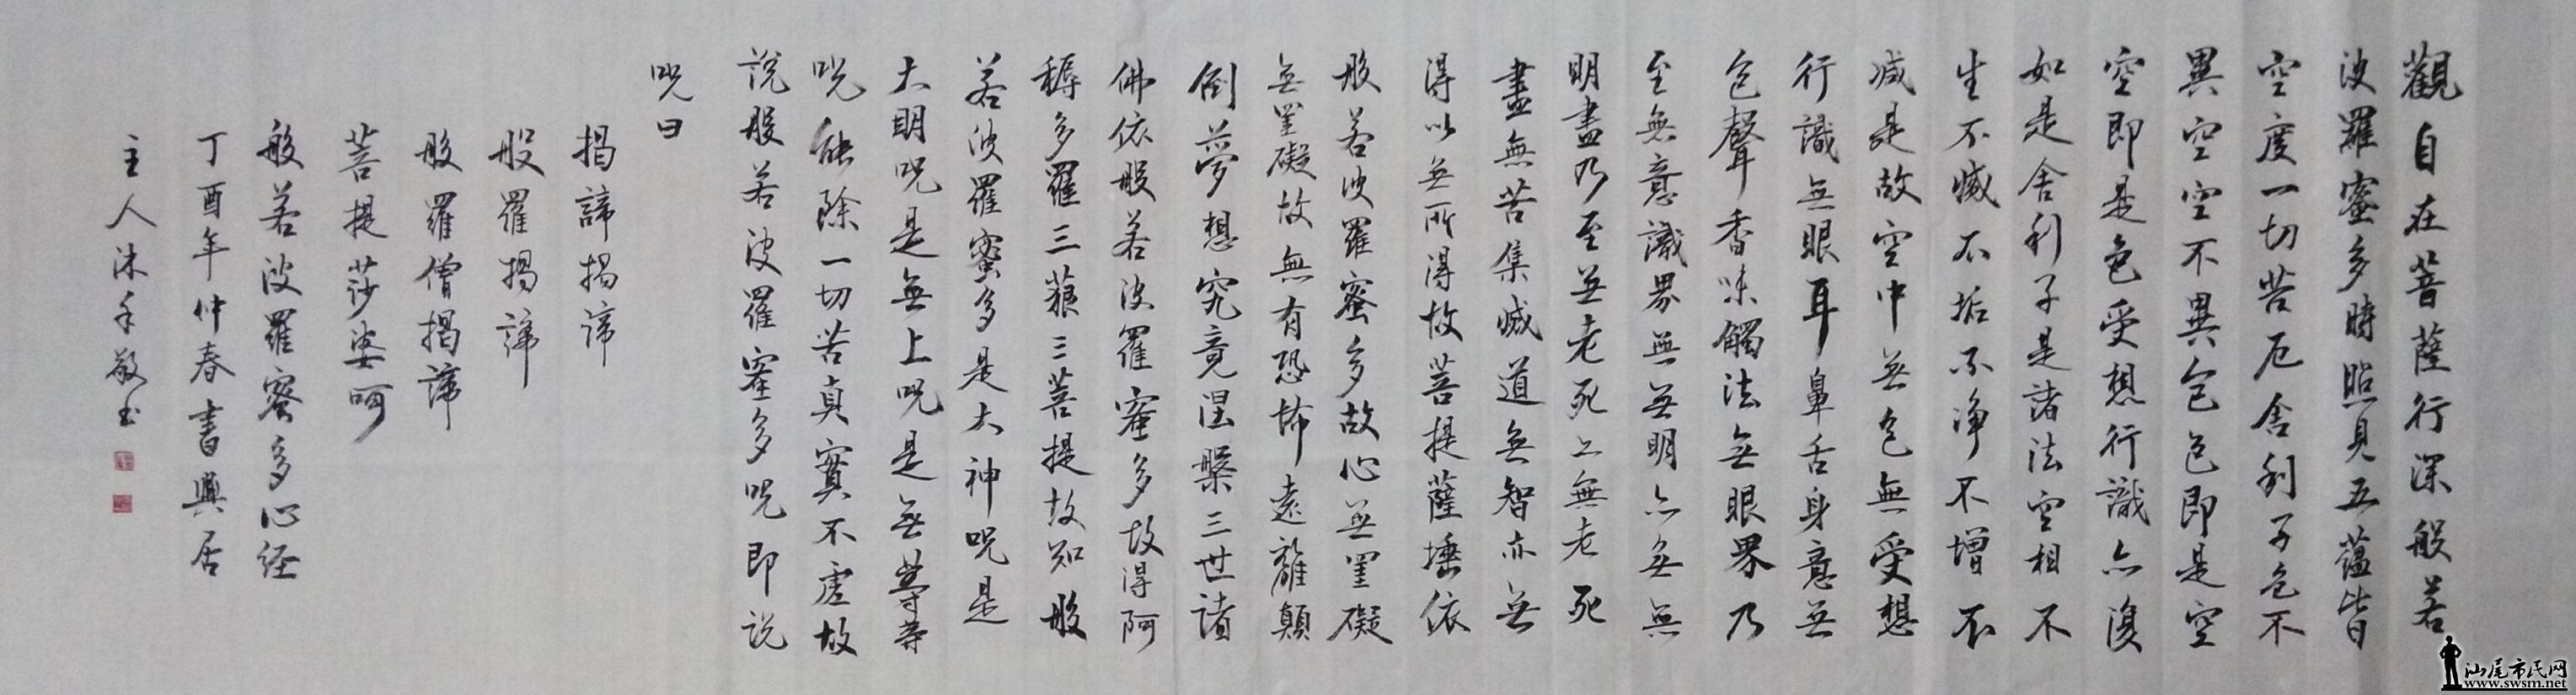 觀自在菩薩行深般若
波羅蜜多時照見五蘊皆
空度一切苦厄舍利子色不
異空空不異色色即是空
空即是色受想行識亦復
如是舍利子是諸法空相不
生不滅不垢不净不增不
减是故空中無色無受想
行識無眼耳鼻舌身意無
色聲香味觸法無眼界乃
至無意識界無無明亦無無
明盡乃至無老死亦無老死
盡無苦集滅道無智亦無
得以無所得故菩提薩埵依
般若波羅蜜多故心無罣礙
無罣礙故無有恐怖遠離顛
倒夢想究竟涅槃三世諸
佛依般若波羅蜜多故得阿
耨多羅三藐三菩提故知般
若波羅蜜多是大神咒是
大明咒是無上咒是無等等
咒能除一切苦真實不虛故
說般若波羅蜜多咒即說
咒曰
揭諦揭諦
般羅揭諦
般羅僧揭諦
菩提莎婆呵
般若波羅蜜多心経
丁酉年仲春書興居
主人沐手敬书
汕尾市民网
www.swsm.net